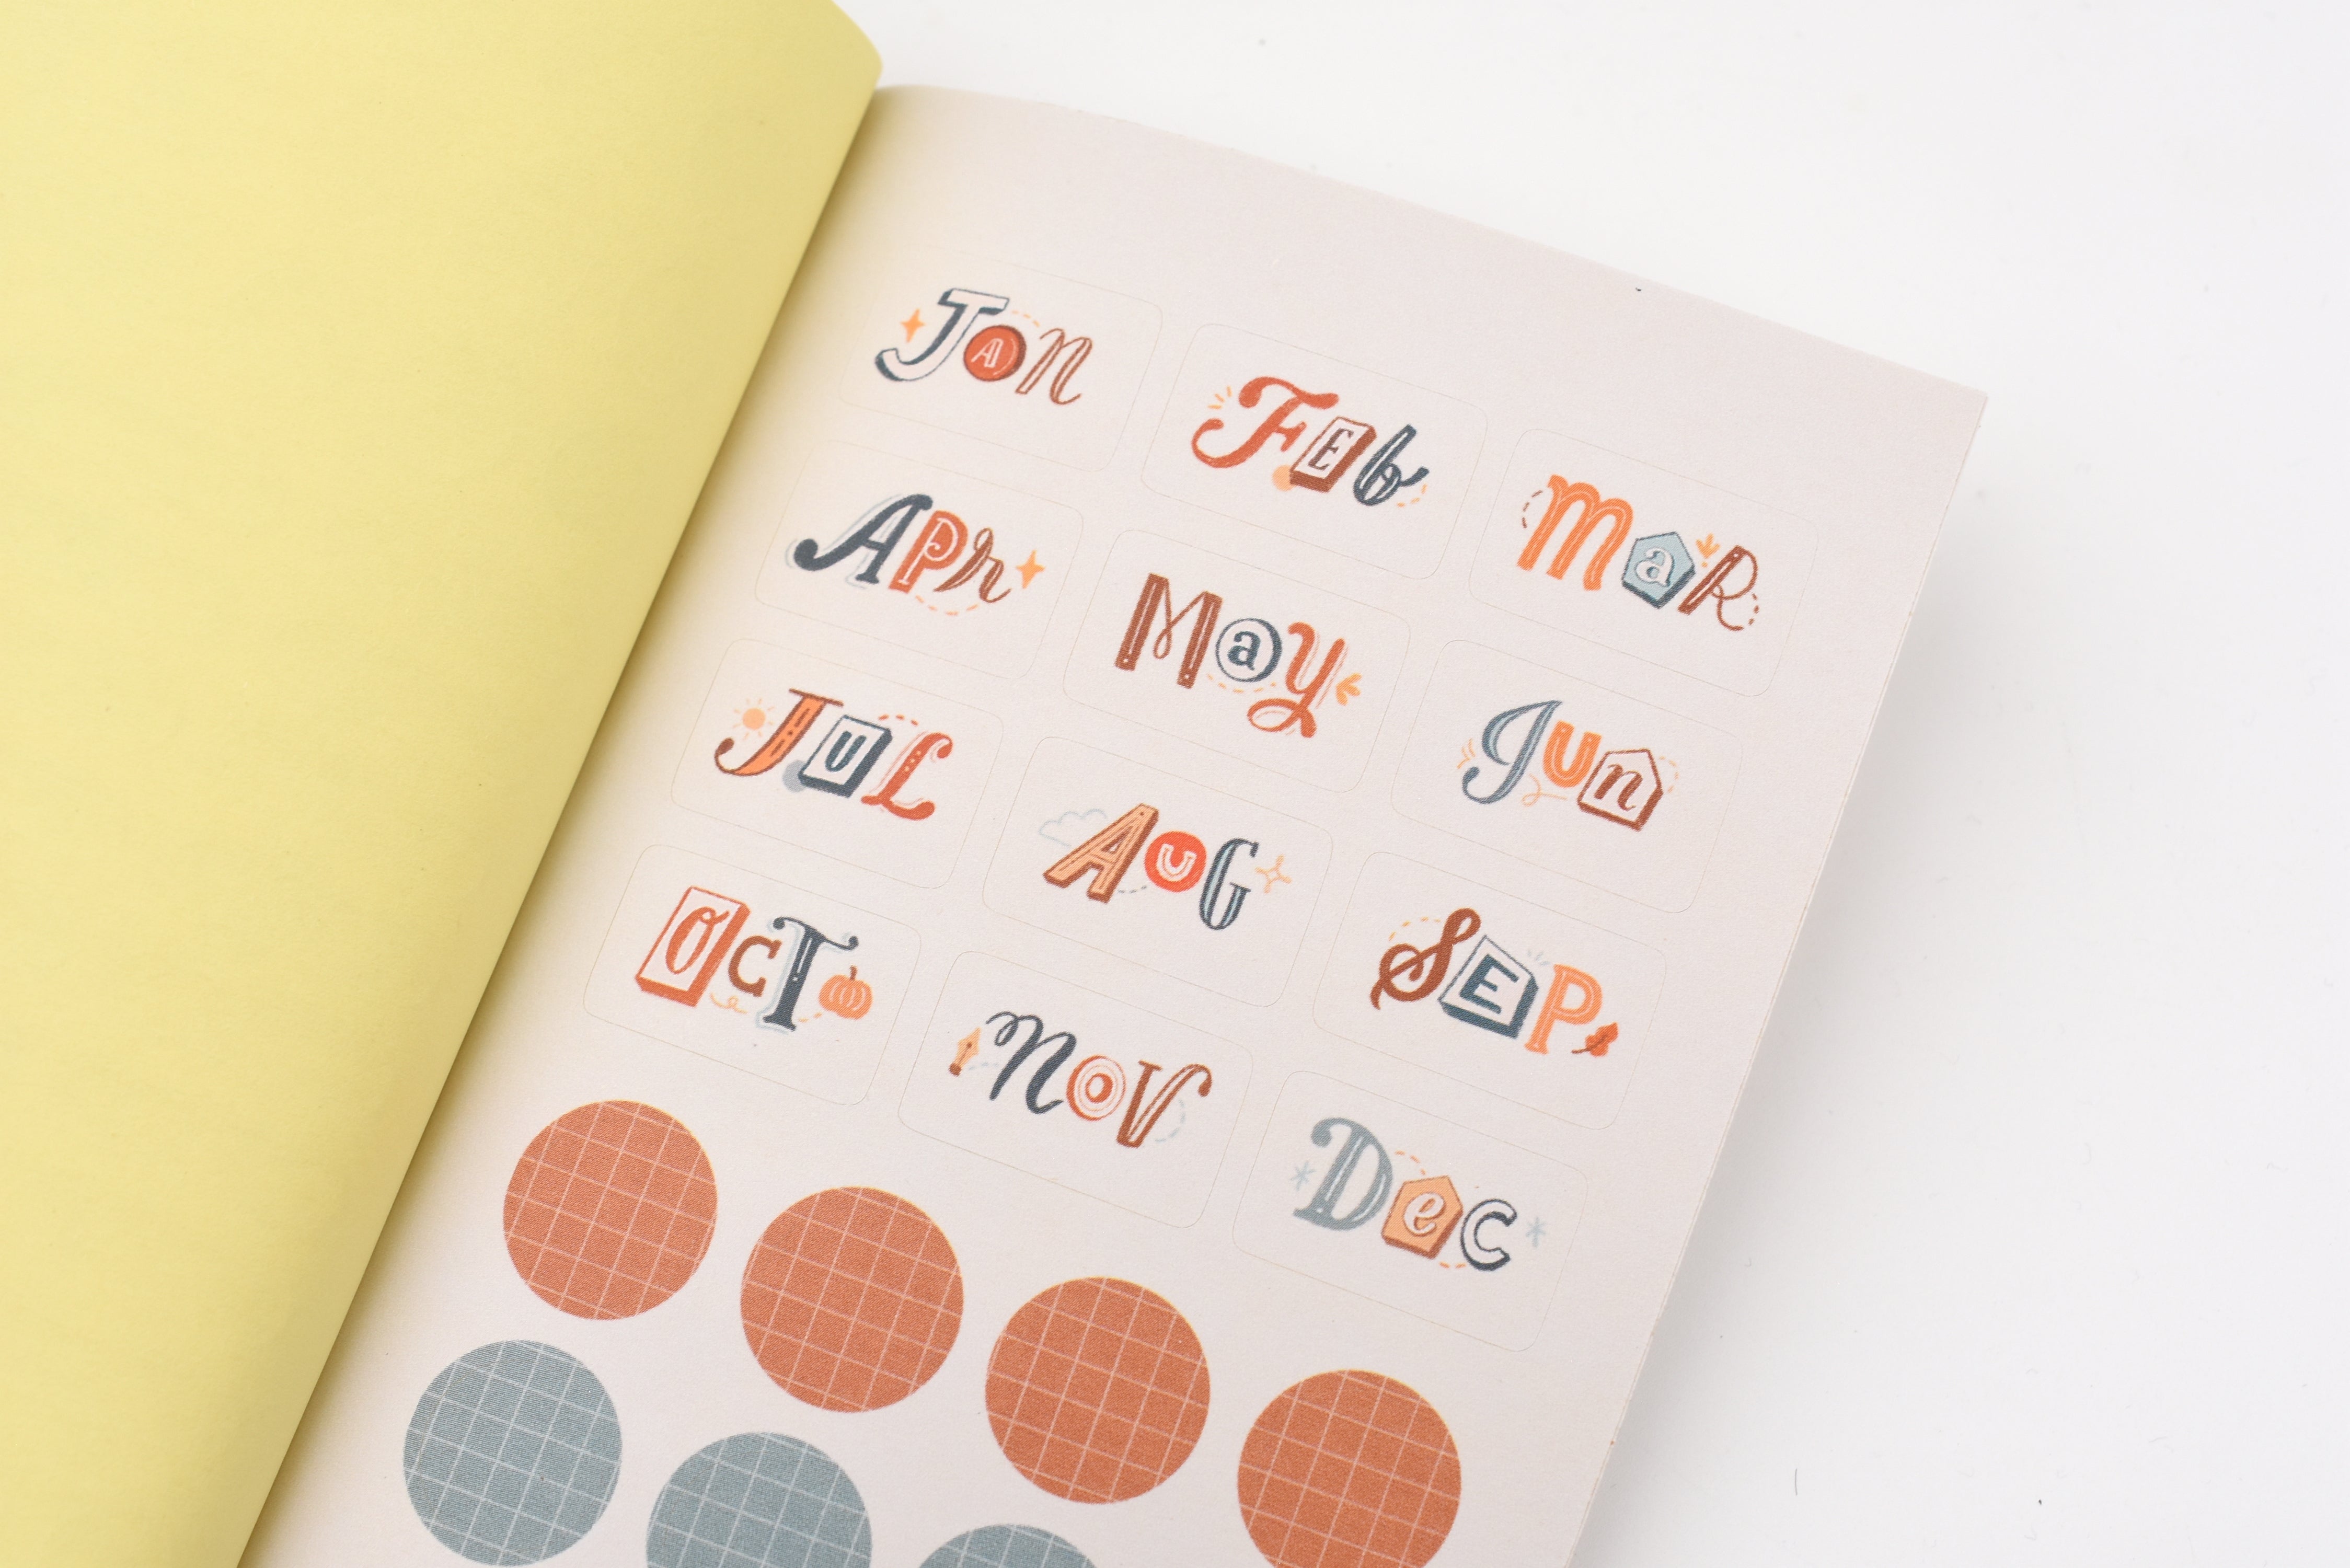 Jan Feb Mar
Apr May Jun
Jul Aug Sep
Oct Nov Dec